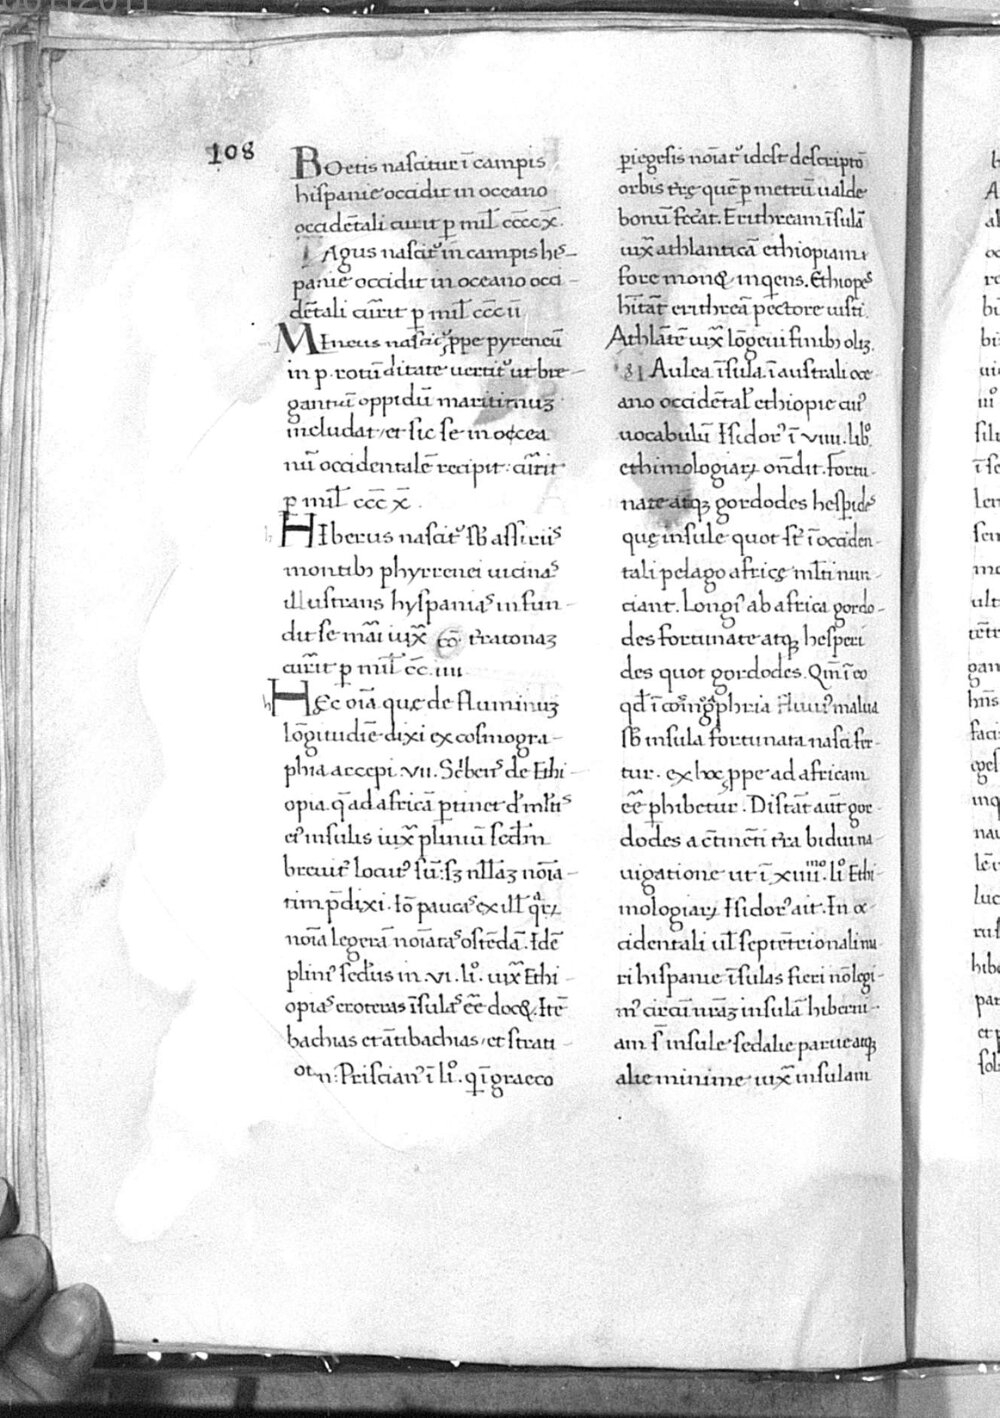 108
BOetis nascitur ī campis
hispanie occidit in oceano
occidētali currit p mil̄ cccc x̄.
TAgus nascit᷑ in campis hęs-
panie occidit in oceano occi-
dētali currit p mil̄ ccc ii
MIneus nascit᷑ ꝓppe pyreneū
in p. rotūditate uertit᷑ ut bre-
gantiū oppidū maritimuꝫ
includat et sic se in occea
nū occidentalē recipit currit
p mil̄ ccc x̄.
HIberus nascit᷑ sb assiriis
montibꝫ phyrrenei uicinas
illustrans hyspanias in fun-
dit se mari iux̄ tratonaꝫ
currit p mil̄ cc. iiii
HĘc oīa que de fluminuꝫ
lōgitudiē dixi ex cosmogra-
phia accepi. vii. de Ethi-
opia. q̄ ad africā ptinet
et insulis iux̄ pliniū secdm
breuit᷑ locut᷒ sū: sꝫ nllaꝫ noīa-
tim p̄dixi. Iō paucas ex ill̄
noīa legerā noīatas ostēdā. Idē
plini᷒ secd᷒us in. vi. li°. iux̄ Ethi-
opias eroteras īsulas ee docꝫ. Itē
bachias et ātibachias et strati
otn: Priscian᷒ ī li°. q ī graeco
piegesis noīat᷑ id est descriptō
orbis tre quē p metrū ualde
bonū fec̄at. Erithream īsulā
iux̄ athlanticā ethiopiam
fore monꝫ inqens. Ethiopes
hītāt erithreā pectore iusti
Athlāte iux̄ lōgeui finibꝫ oliꝫ.
Aulea īsula. ī australi oce
ano occidētal̄ ethiopie cui᷒
uocabulū Isidor᷒ ī viiii. lib°
ethimologiaꝝ ondit. Fortu-
nate atqꝫ gordodes hespides
quę insule quot st̄ ī occiden-
tali pelago africę mlti nun-
ciant. Longi᷒ ab africa gordo-
des fortunate atqꝫ hesperi
des quot gordodes. Qm̄ ī eo
qd ī cosmogphria fluui᷒ malua
sb insula fortunata nasci fer-
tur. ex hoc ꝓppe ad africam
ee phibetur. Distāt aut gor-
dodes a ctinēti tra bidui na-
uigatione ut ī xiiii.mo li° Ethi-
mologiaꝝ Isidor᷒ ait. In oc
cidentali ul̄ septētrionali ma
ri hispanie īsulas fieri nō legi-
m᷒ circū nraꝫ insulā hiberni-
am st̄ insule sedalie parue atqꝫ
alie minime iux̄ insulam